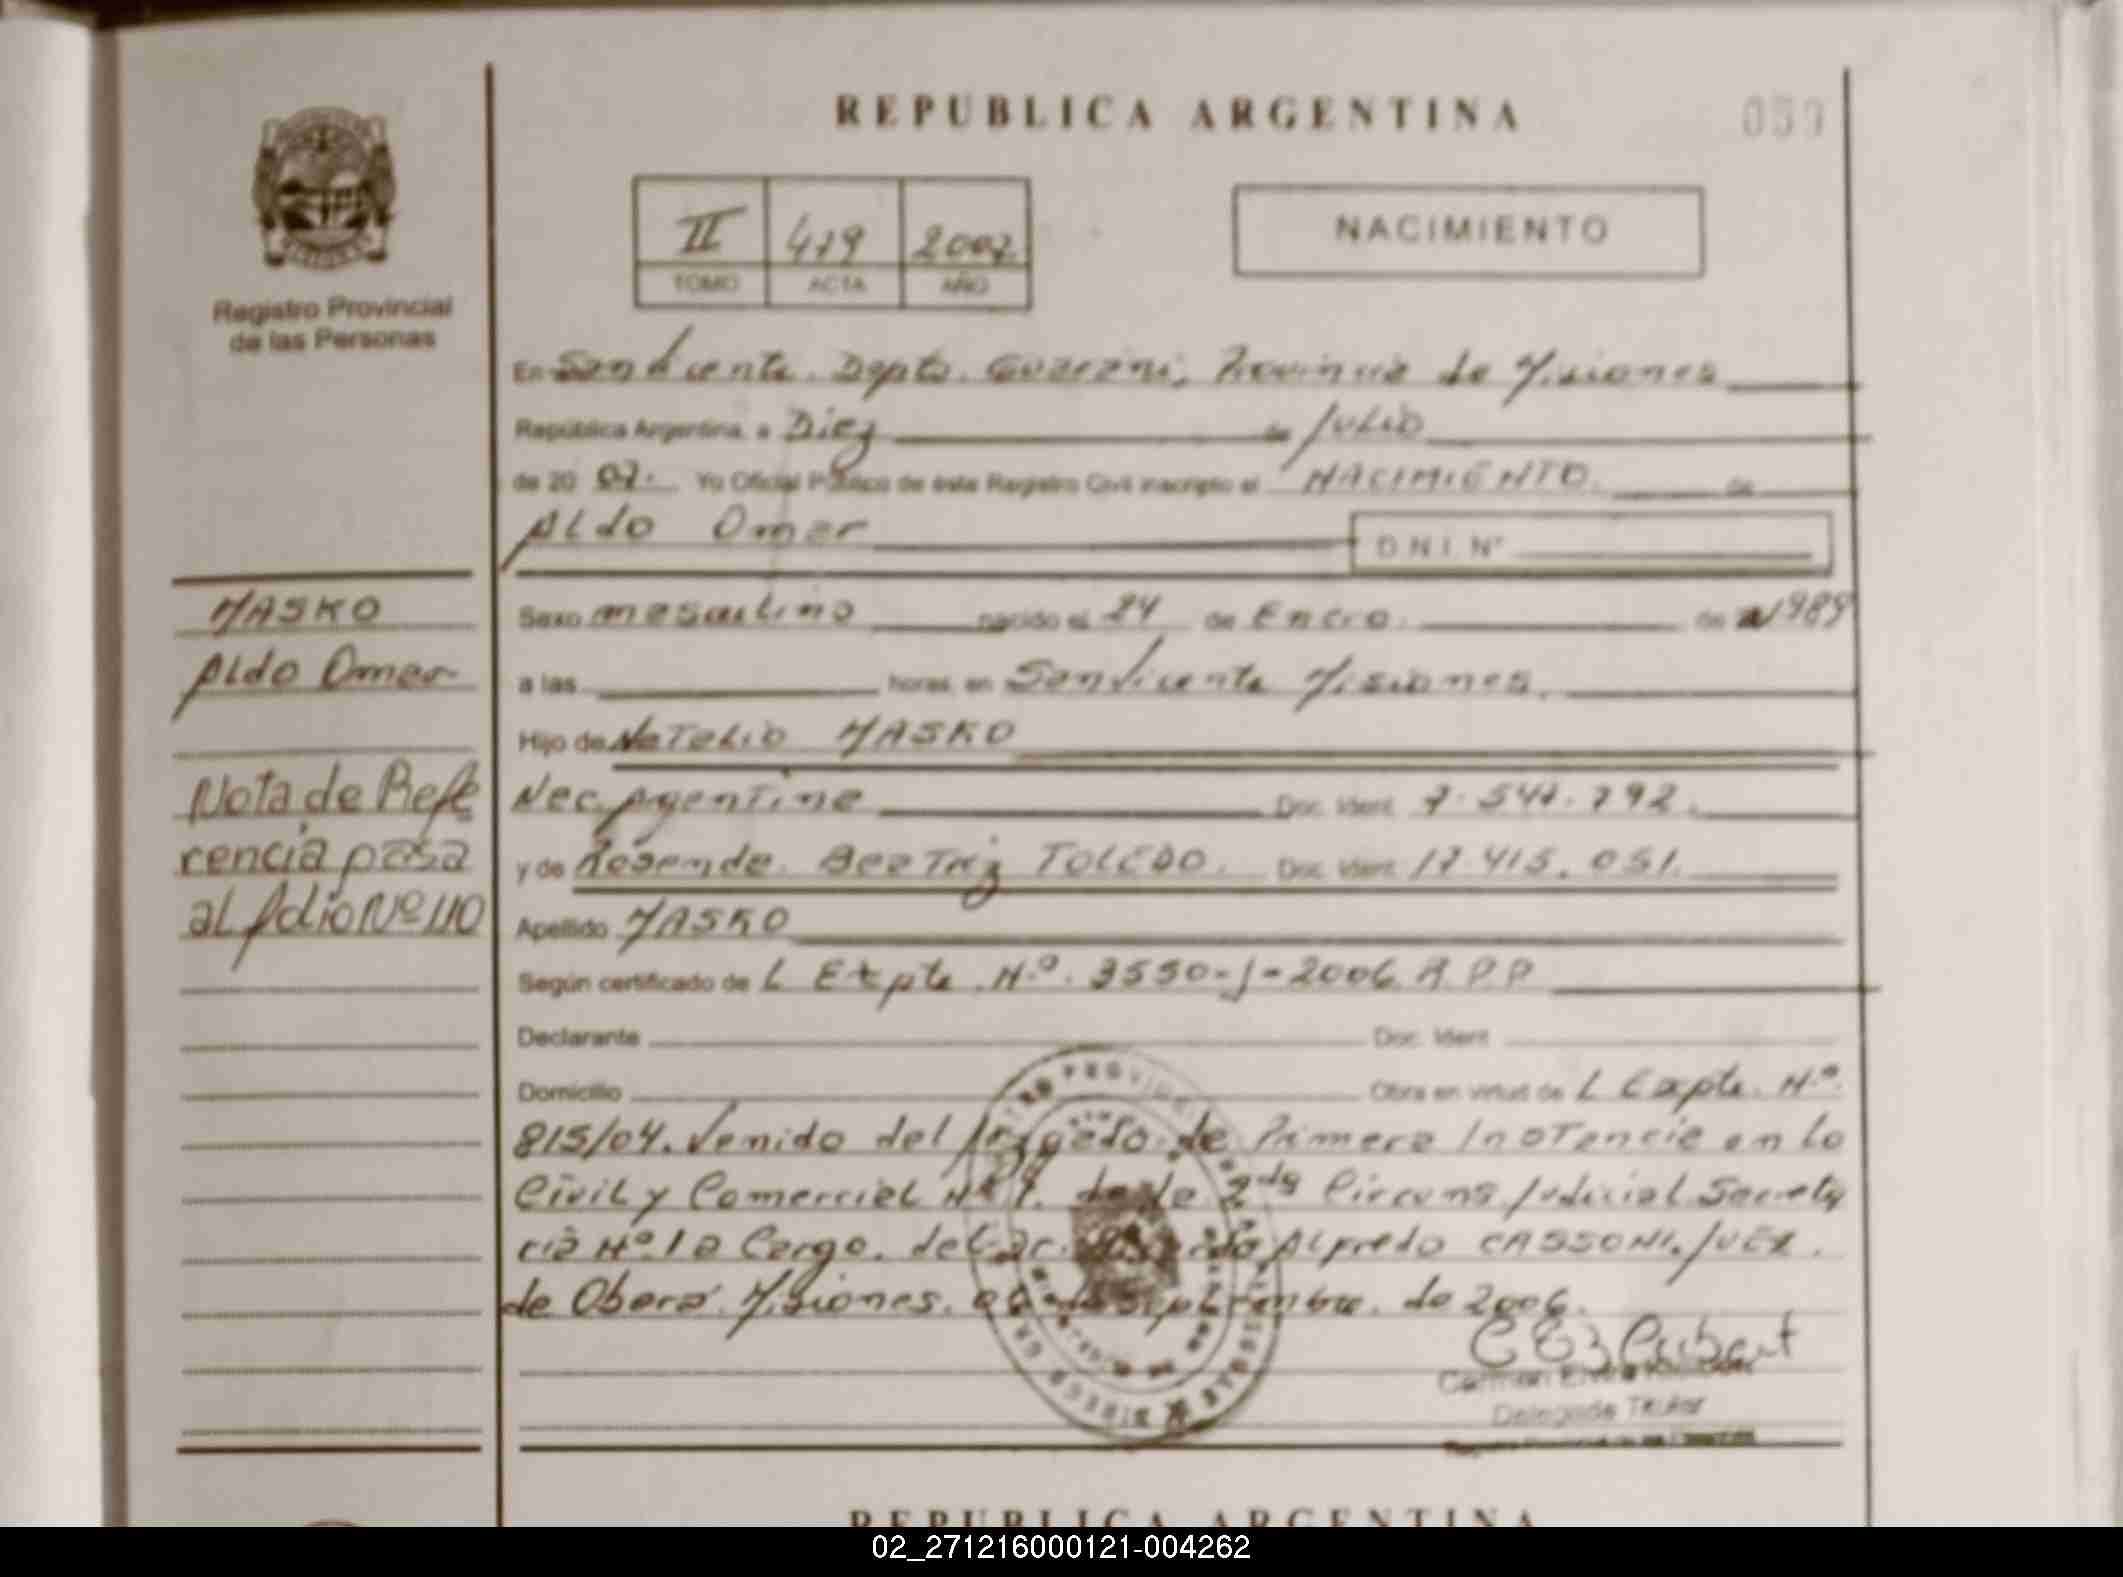 REPUBLICA ARGENTINA
059
II 479 2007.
TOMO ACTA AÑO
NACIMIENTO
Registro Provincial
de las Personas
En San Vicente. Dpto. Guarani, Provincia de Misiones
República Argentina, a Diez de Julio
de 20 07. Yo Oficial Público de este Registro Civil inscripto el NACIMIENTO. de
Aldo Omar D.N.I. Nº
MASKO
Aldo Omar
Nota de Refe
rencia pasa
al folio Nº 110
Sexo masculino nacido el 24 de Enero. de 1989
a las horas, en San Vicente Misiones.
Hijo de Natalio MASKO
Nac. Argentina Doc. Ident. 7.547.792.
y de Rosa Beatriz TOLEDO. Doc. Ident. 17.415.051.
Apellido MASKO
Según certificado de L Expte. N.º. 3550-J-2006. R.P.P
Declarante Doc. Ident.
Domicilio Obra en virtud de L Expte. N.º
815/04. Venido del Juzgado de Primera Instancia en lo
Civil y Comercial Nº de la 2da Circuns. Judicial Secreta
ria Nº. 1 a Cargo. del Alfredo CASSONI. JUEZ.
de Obera. Misiones. Septiembre. de 2006.
Carmen
Delegada Titular
REPUBLICA ARGENTINA
02_271216000121-004262